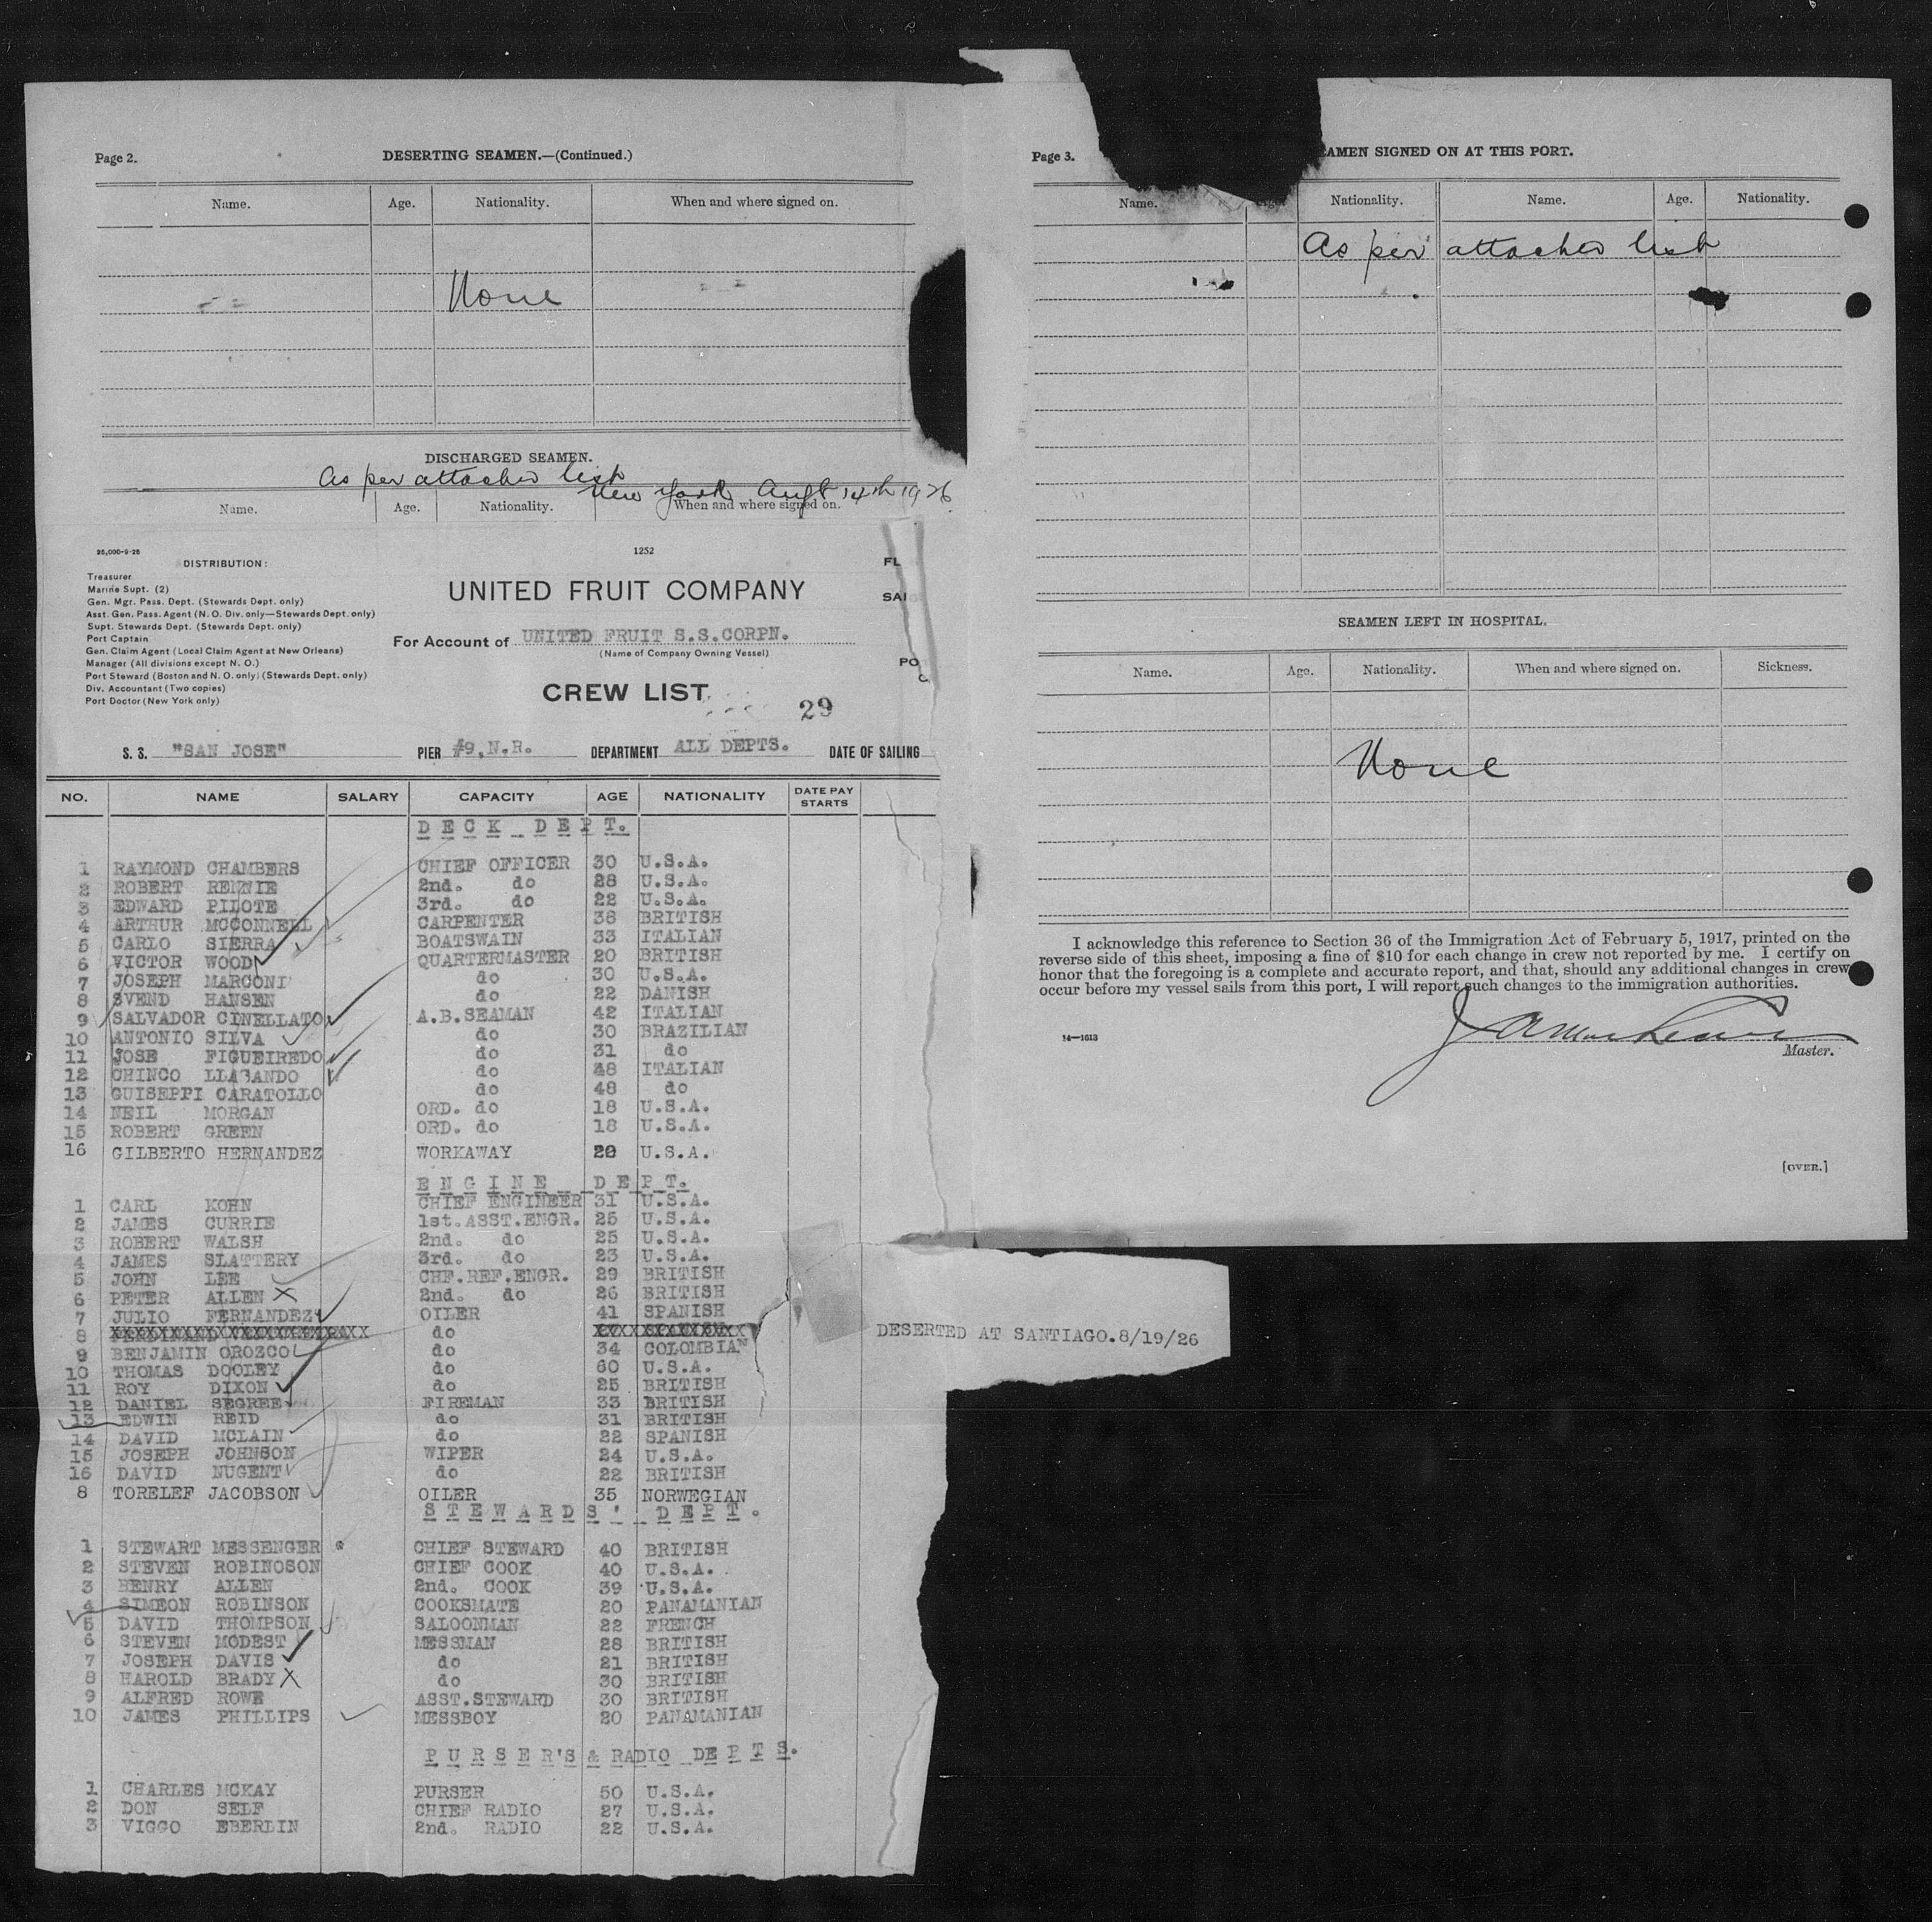 Page 2.
DESERTING SEAMEN.—(Continued.)
Name. Age. Nationality. When and where signed on.
None
DISCHARGED SEAMEN.
As per attached list
New York Augt 14th 1926
Name. Age. Nationality. When and where signed on.
25,000-9-25
1252
DISTRIBUTION:
Treasurer
Marine Supt. (2)
Gen. Mgr. Pass. Dept. (Stewards Dept. only)
Asst. Gen. Pass. Agent (N. O. Div. only—Stewards Dept. only)
Supt. Stewards Dept. (Stewards Dept. only)
Port Captain
Gen. Claim Agent (Local Claim Agent at New Orleans)
Manager (All divisions except N. O.)
Port Steward (Boston and N. O. only) (Stewards Dept. only)
Div. Accountant (Two copies)
Port Doctor (New York only)
UNITED FRUIT COMPANY
For Account of UNITED FRUIT S.S.CORPN.
(Name of Company Owning Vessel)
CREW LIST
29
FL
SAI
PO
S. S. "SAN JOSE" PIER #9, N.R. DEPARTMENT ALL DEPTS. DATE OF SAILING
NO. NAME SALARY CAPACITY AGE NATIONALITY DATE PAY STARTS
DECK DEPT.
1 RAYMOND CHAMBERS CHIEF OFFICER 30 U.S.A.
2 ROBERT RENNIE 2nd. do 28 U.S.A.
3 EDWARD PILOTE 3rd. do 22 U.S.A.
4 ARTHUR MCCONNELL CARPENTER 38 BRITISH
5 CARLO SIERRA BOATSWAIN 33 ITALIAN
6 VICTOR WOOD QUARTERMASTER 20 BRITISH
7 JOSEPH MARCONI do 30 U.S.A.
8 SVEND HANSEN do 22 DANISH
9 SALVADOR CINELLATO A.B.SEAMAN 42 ITALIAN
10 ANTONIO SILVA do 30 BRAZILIAN
11 JOSE FIGUEIREDO do 31 do
12 CHINCO LLABANDO do 48 ITALIAN
13 GUISEPPI CARATOLLO do 48 do
14 NEIL MORGAN ORD. do 18 U.S.A.
15 ROBERT GREEN ORD. do 18 U.S.A.
16 GILBERTO HERNANDEZ WORKAWAY 28 U.S.A.
ENGINE DEPT.
1 CARL KOHN CHIEF ENGINEER 31 U.S.A.
2 JAMES CURRIE 1st.ASST.ENGR. 25 U.S.A.
3 ROBERT WALSH 2nd. do 25 U.S.A.
4 JAMES SLATTERY 3rd. do 23 U.S.A.
5 JOHN LEE CHF.REF.ENGR. 29 BRITISH
6 PETER ALLEN X 2nd. do 26 BRITISH
7 JULIO FERNANDEZ OILER 41 SPANISH
8 do
DESERTED AT SANTIAGO.8/19/26
9 BENJAMIN OROZCO do 34 COLOMBIAN
10 THOMAS DOOLEY do 60 U.S.A.
11 ROY DIXON do 25 BRITISH
12 DANIEL SEGREE FIREMAN 33 BRITISH
13 EDWIN REID do 31 BRITISH
14 DAVID MCLAIN do 22 SPANISH
15 JOSEPH JOHNSON WIPER 24 U.S.A.
16 DAVID NUGENT do 22 BRITISH
8 TORELEF JACOBSON OILER 35 NORWEGIAN
STEWARDS' DEPT.
1 STEWART MESSENGER CHIEF STEWARD 40 BRITISH
2 STEVEN ROBINOSON CHIEF COOK 40 U.S.A.
3 BENRY ALLEN 2nd. COOK 39 U.S.A.
4 SIMEON ROBINSON COOKSMATE 20 PANAMANIAN
5 DAVID THOMPSON SALOONMAN 22 FRENCH
6 STEVEN MODEST MESSMAN 28 BRITISH
7 JOSEPH DAVIS do 21 BRITISH
8 HAROLD BRADY X do 30 BRITISH
9 ALFRED ROWE ASST.STEWARD 30 BRITISH
10 JAMES PHILLIPS MESSBOY 20 PANAMANIAN
PURSER'S & RADIO DEPTS.
1 CHARLES MCKAY PURSER 50 U.S.A.
2 DON SELF CHIEF RADIO 27 U.S.A.
3 VIGGO EBERLIN 2nd. RADIO 22 U.S.A.
Page 3.
AMEN SIGNED ON AT THIS PORT.
Name. Age. Nationality. Name. Age. Nationality.
As per attached list
SEAMEN LEFT IN HOSPITAL.
Name. Age. Nationality. When and where signed on. Sickness.
None
I acknowledge this reference to Section 36 of the Immigration Act of February 5, 1917, printed on the
reverse side of this sheet, imposing a fine of $10 for each change in crew not reported by me. I certify on
honor that the foregoing is a complete and accurate report, and that, should any additional changes in crew
occur before my vessel sails from this port, I will report such changes to the immigration authorities.
14—1613
Master.
[OVER.]